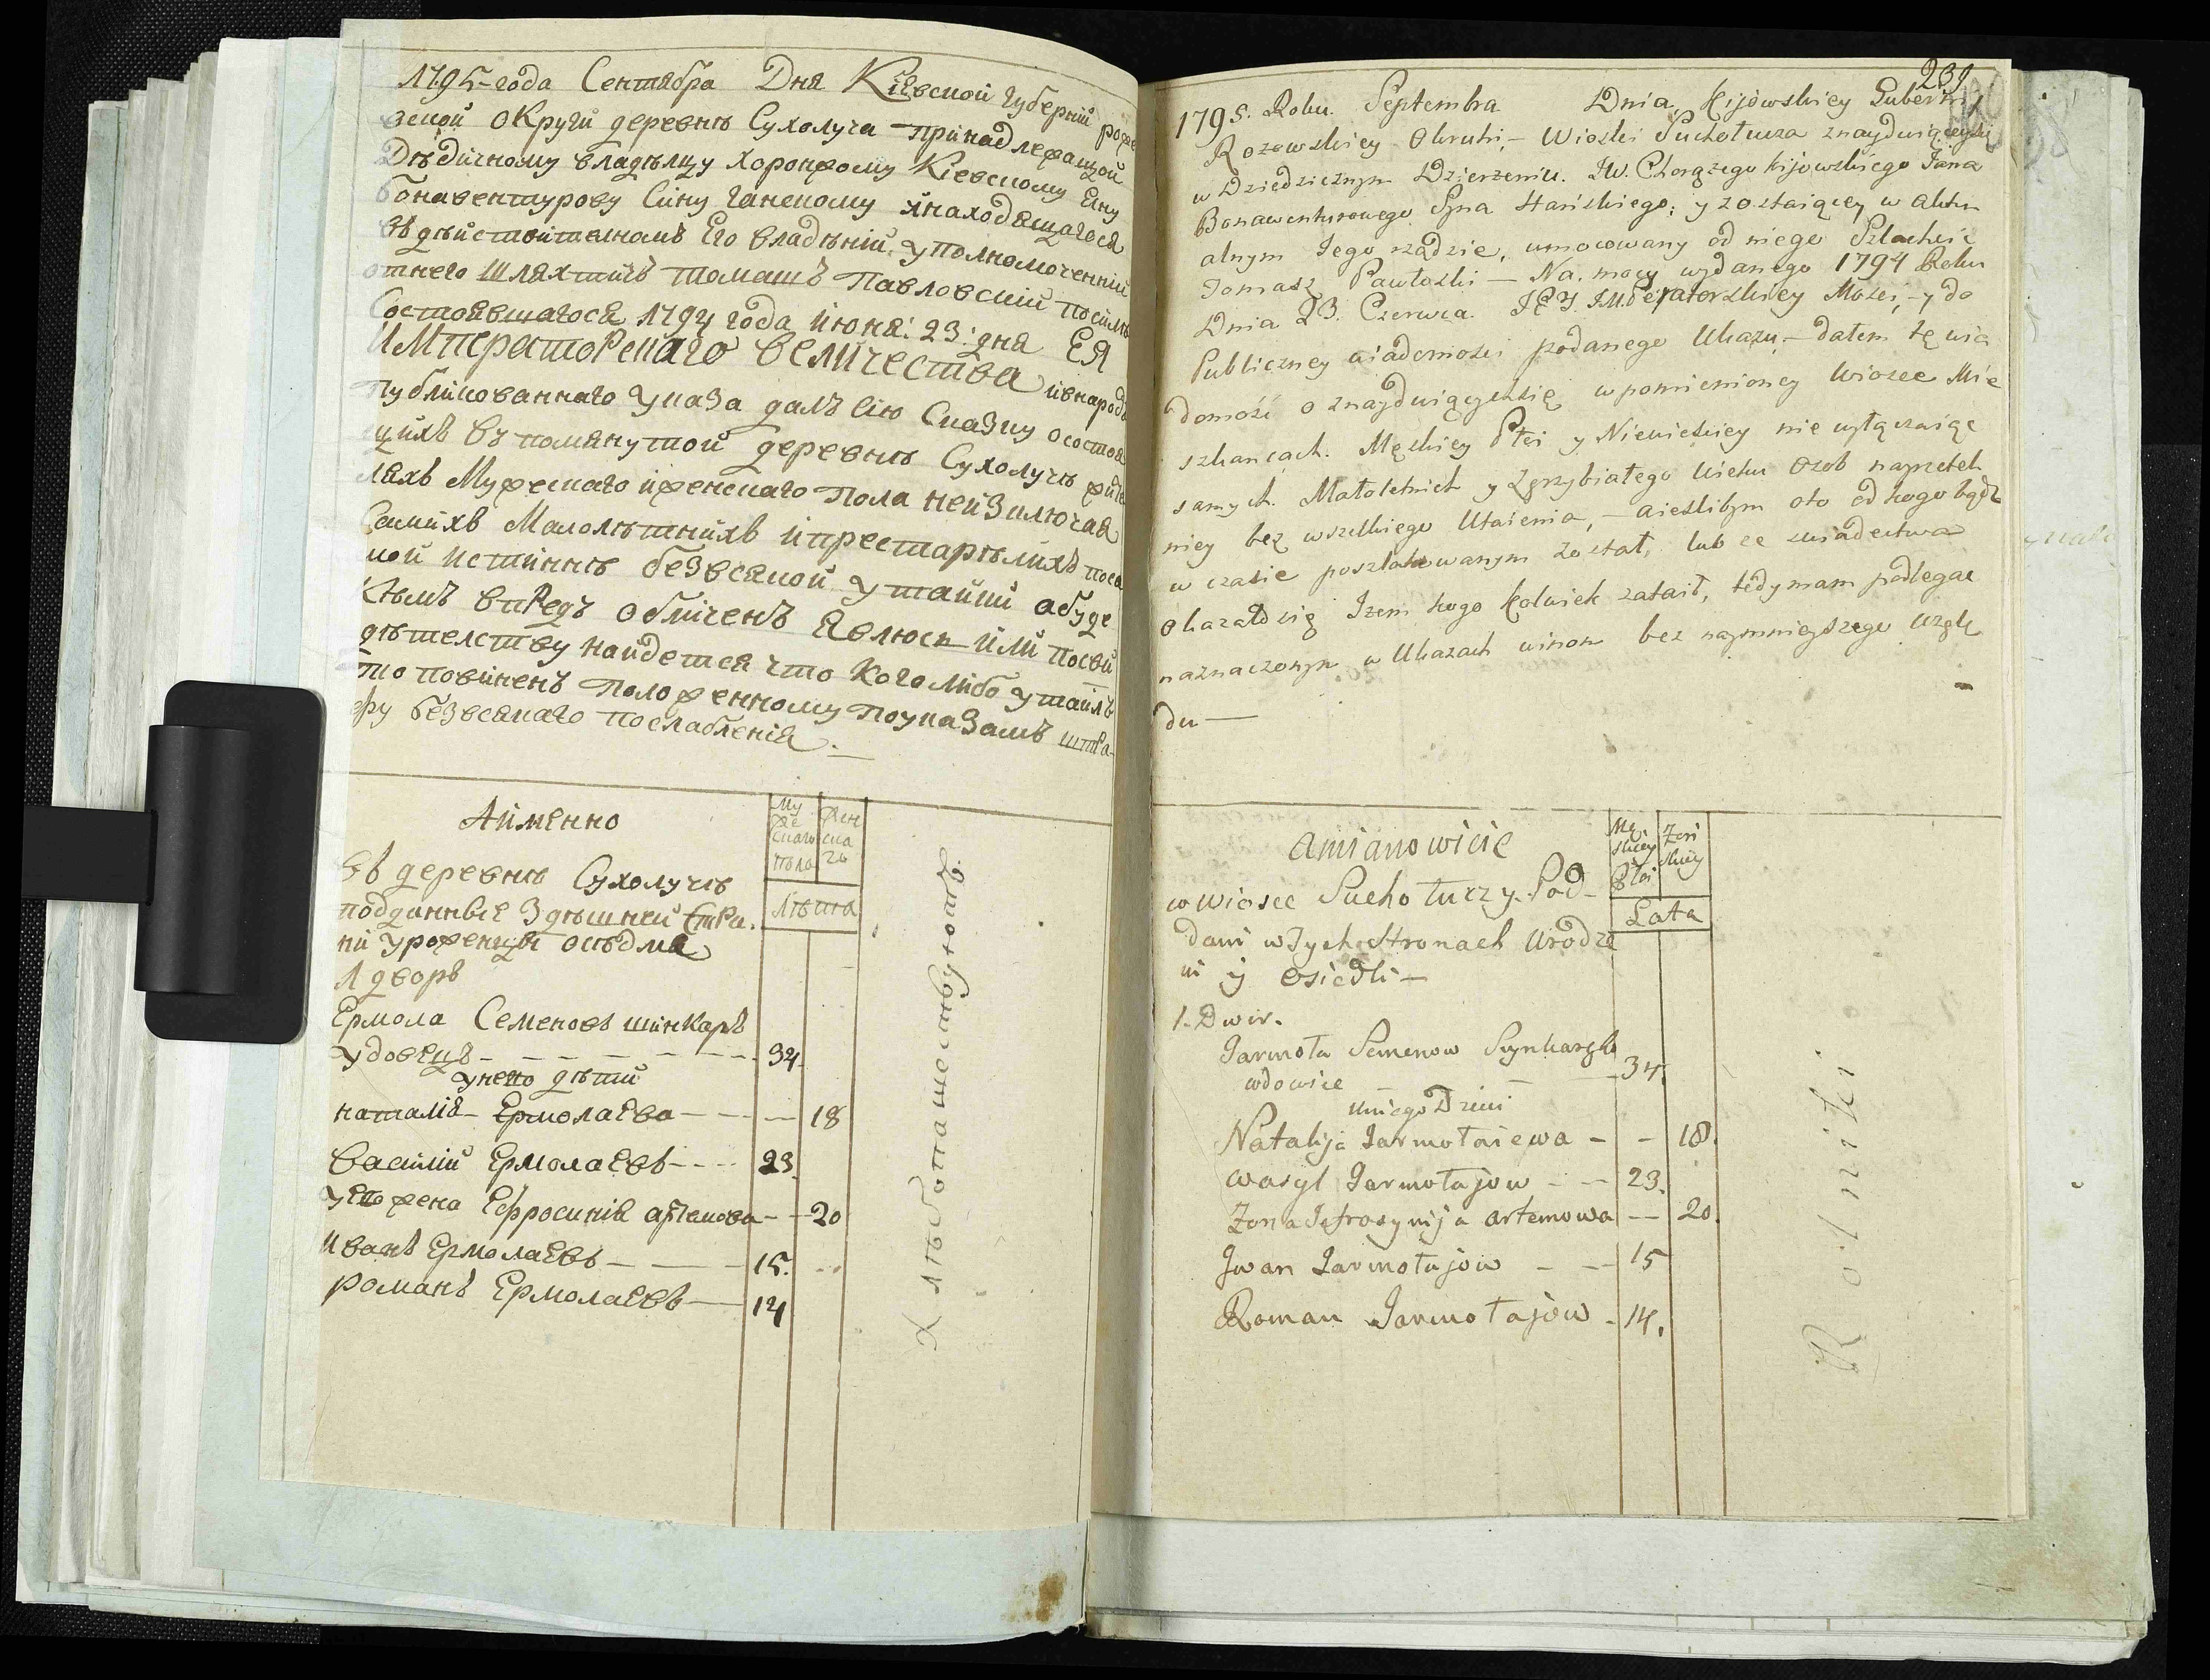 1795 года Сентября Дня Кіевской губерніи
округи деревнѣ Сухолуча принадлежащой
Дѣдичному владѣлцу хоронжому Кіевскому
Бонавентурову Сину ганскому
Его владѣніи уполномоченній
отнего шляхтичъ томашъ Павловскій
Состоявшагося 1794 года июня: 23: дня ЕЯ
ИМператорскаго величества
публикованнаго указа далъ сію Сказку о
въ помянутой деревнѣ Сухолучѣ
Мужескаго иженскаго пола неизключая
Самихъ Малолѣтнихъ ипрестарѣлихъ
истиннѣ безвсякой утайки
Кѣмъ впредъ обличенъ Явлюсь или
найдется что Кого либо утаилъ
то повиненъ положенному поуказамъ штра-
фу безвсякаго послабленія.
Аименно
Му
же
скаго
пола
жен
ска
го
Лѣта
Въ деревнѣ Сухолучѣ
подданные Здѣшней Стра.
ни уроженцы
1 дворъ
Ермола Семеновъ шинкаръ
удовецъ - - - - - - 34.
унего дѣти
наталія Ермолаева - - - 18
Василій Ермолаевъ - - - 23.
Его жена Ефросинія артемова - - 20
Иванъ Ермолаевъ - - - 15.
романъ Ермолаевъ - 14
Хлѣбопашествуютъ.
239
1795. Roku. Septembra Dnia Kijowskiey Guberni,
Okruhi, - Wioski Suchołucza znayduiącey się
w Dziedzicznym Dzierzeniu. JW. Chorązego kijowskiego Jana
Bonawenturowego Syna Hańskiego; y zostaiącey w aktu
alnym Jego rządzie, umocowany od niego Szlachcic
Tomasz Pawłoski — Na mocy wydanego 1794 Roku
Dnia 23. Czerwca. JEY IMPeratorskiey Mości, - y do
Publiczney wiadomości podanego Ukazu, - dałem tę wia
domość o znayduiących się wpomienioney Wiosce Mie
szkańcach. Męzkiey Płci y Niewieściey nie wyłączaiąc
samych. Małoletnich y Zgrzybiałego Wieku Osob nayrzetel
niey bez wszelkiego Utaienia, - aieślibym oto od kogo bądz
w czasie poszlakowanym został, lub ze swiadectwa
Okazałosię Izem kogo kolwiek zataił, tedy mam podlegac
naznaczonym w Ukazach winom bez naymnieyszego wzglę
du —
amianowicie
Mę
skiey
Płci
Zeń
skiey
Lata
w wiosce Suchołuczy. Pod-
dani wTych Stronach Urodze
ni y osiedli —
1. Dwir.
Jarmoła Semenow Szynkarzły
wdowiec — — - 34.
Uniego Dzieci
Natalija Jarmołaiewa - - 18.
Wasyl Jarmołajow - - 23.
Zona Jefrosynija artemowa - - 20.
Jwan Jarmołajow - - 15
Roman Jarmołajow - 14.
Rolniki.